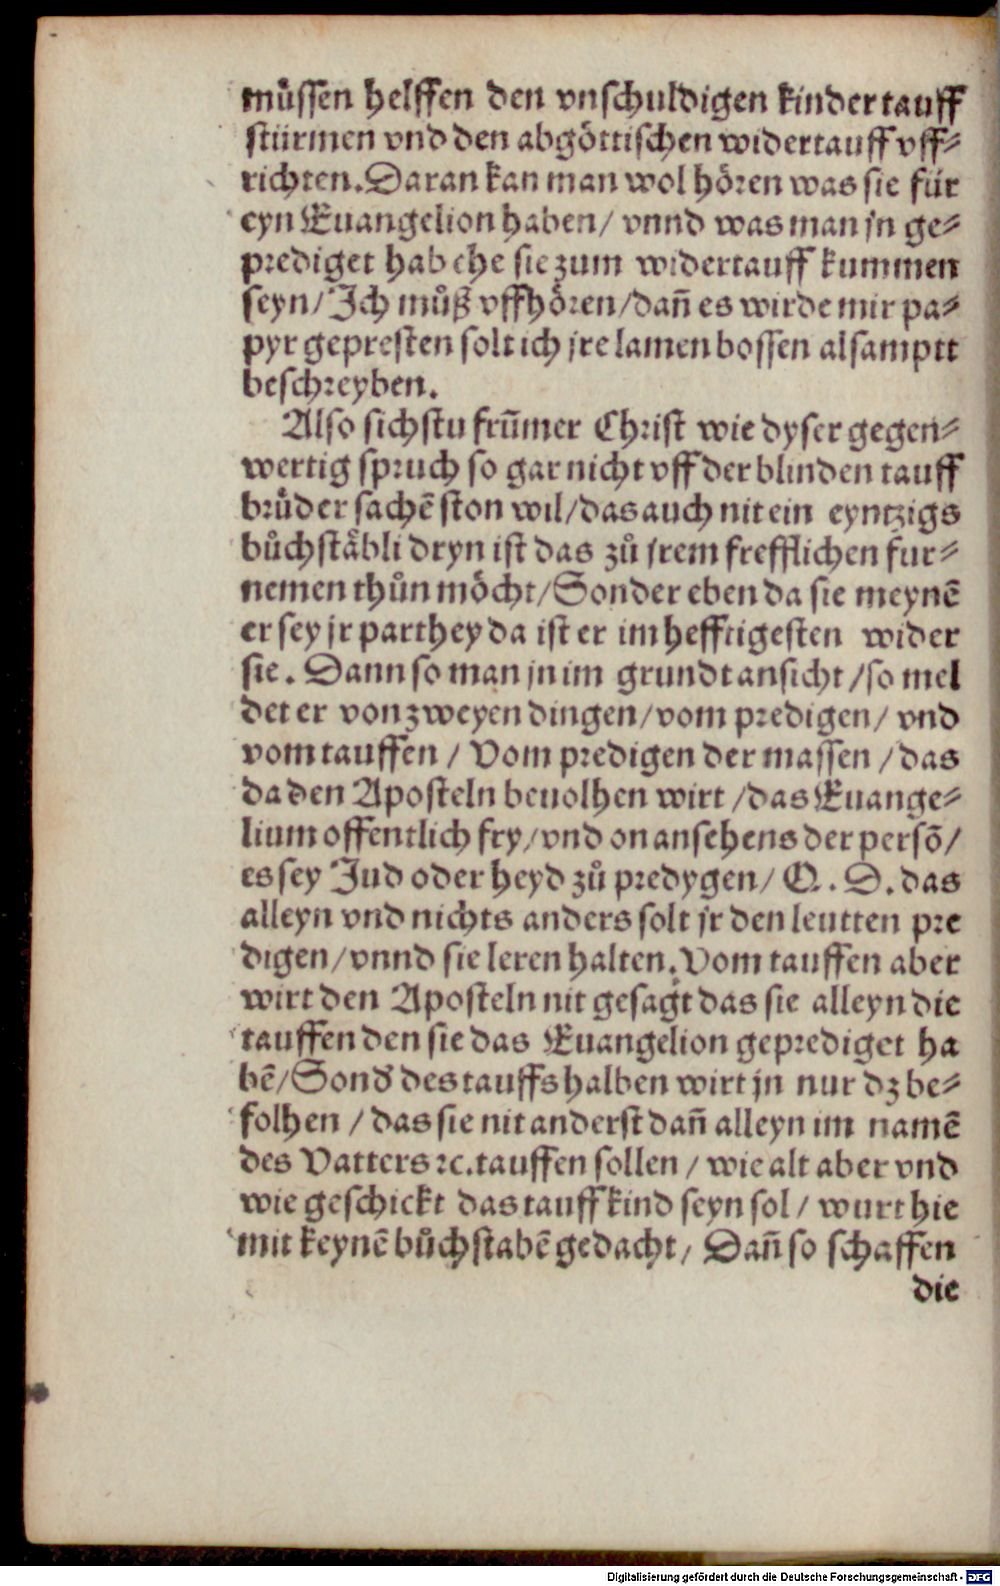 muͤssen helffen den vnschuldigen kinder tauff
stürmen vnd den abgöttischen widertauff vff⸗
richten. Daran kan man wol hoͤren was sie für
eyn Euangelion haben / vnnd was man jn ge⸗
prediget hab ehe sie zum widertauff kummen
seyn / Ich muͤß vffhoͤren / dañ es wirde mir pa⸗
pyr gepresten solt ich jre lamen bossen alsamptt
beschreyben.
Also sichstu frum̃er Christ wie dyser gegen⸗
wertig spruch so gar nicht vff der blinden tauff
bruͤder sachẽ ston wil / das auch nit ein eyntzigs
buͦchstaͤbli dryn ist das zuͦ jrem frefflichen fur⸗
nemen thuͦn moͤcht / Sonder eben da sie meynẽ
er sey jr parthey da ist er im hefftigesten wider
sie. Dann so man jn im grundt ansicht / so mel
det er von zweyen dingen / vom predigen / vnd
vom tauffen / Vom predigen der massen / das
da den Aposteln beuolhen wirt / das Euange⸗
lium offentlich fry / vnd on ansehens der persõ /
es sey Jud oder heyd zuͦ predygen / Q. D. das
alleyn vnd nichts anders solt jr den leutten pre
digen / vnnd sie leren halten. Vom tauffen aber
wirt den Aposteln nit gesagt das sie alleyn die
tauffen den sie das Euangelion geprediget ha
bẽ / Sond' des tauffs halben wirt jn nur dz be⸗
folhen / das sie nit anderst dañ alleyn im namẽ
des Vatters ꝛc. tauffen sollen / wie alt aber vnd
wie geschickt das tauff kind seyn sol / wurt hie
mit keynẽ buͦchstabẽ gedacht / Dañ so schaffen
die
Digitalisierung gefördert durch die Deutsche Forschungsgemeinschaft - DFG